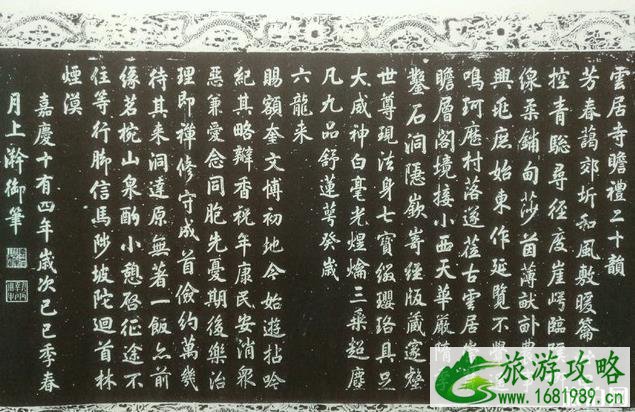 雲居寺瞻禮二十韻
芳春藹郊圻和風敷暖籥
控青聡尋徑度崖崿臨
條柔鋪甸莎茵薄
興 庶始東作延覽不覺
鳴珂歷村落遂蒞古雲居
瞻層閣境接小西天華嚴隋
鑿石洞隱嶔嵜經版藏
世尊現法身七寶綴瓔珞具足
大威神白毫光煜爚三乘超塵
凡九品舒蓮萼癸歲
六龍来
賜額奎文博初地今始遊拈吟
紀其略瓣香祝年康民安消衆
惡兼愛念同胞先憂期後樂治
理即禪修守成首儉約萬幾
待其来洞達原無著一飯亦前
緣茗椀山泉酌小憩啓征途不
住等行脚信馬陟坡陀迴首林
煙漠
嘉慶十有四年歲次己巳季春
月上澣御筆
旅游攻略
www.1681989.cn